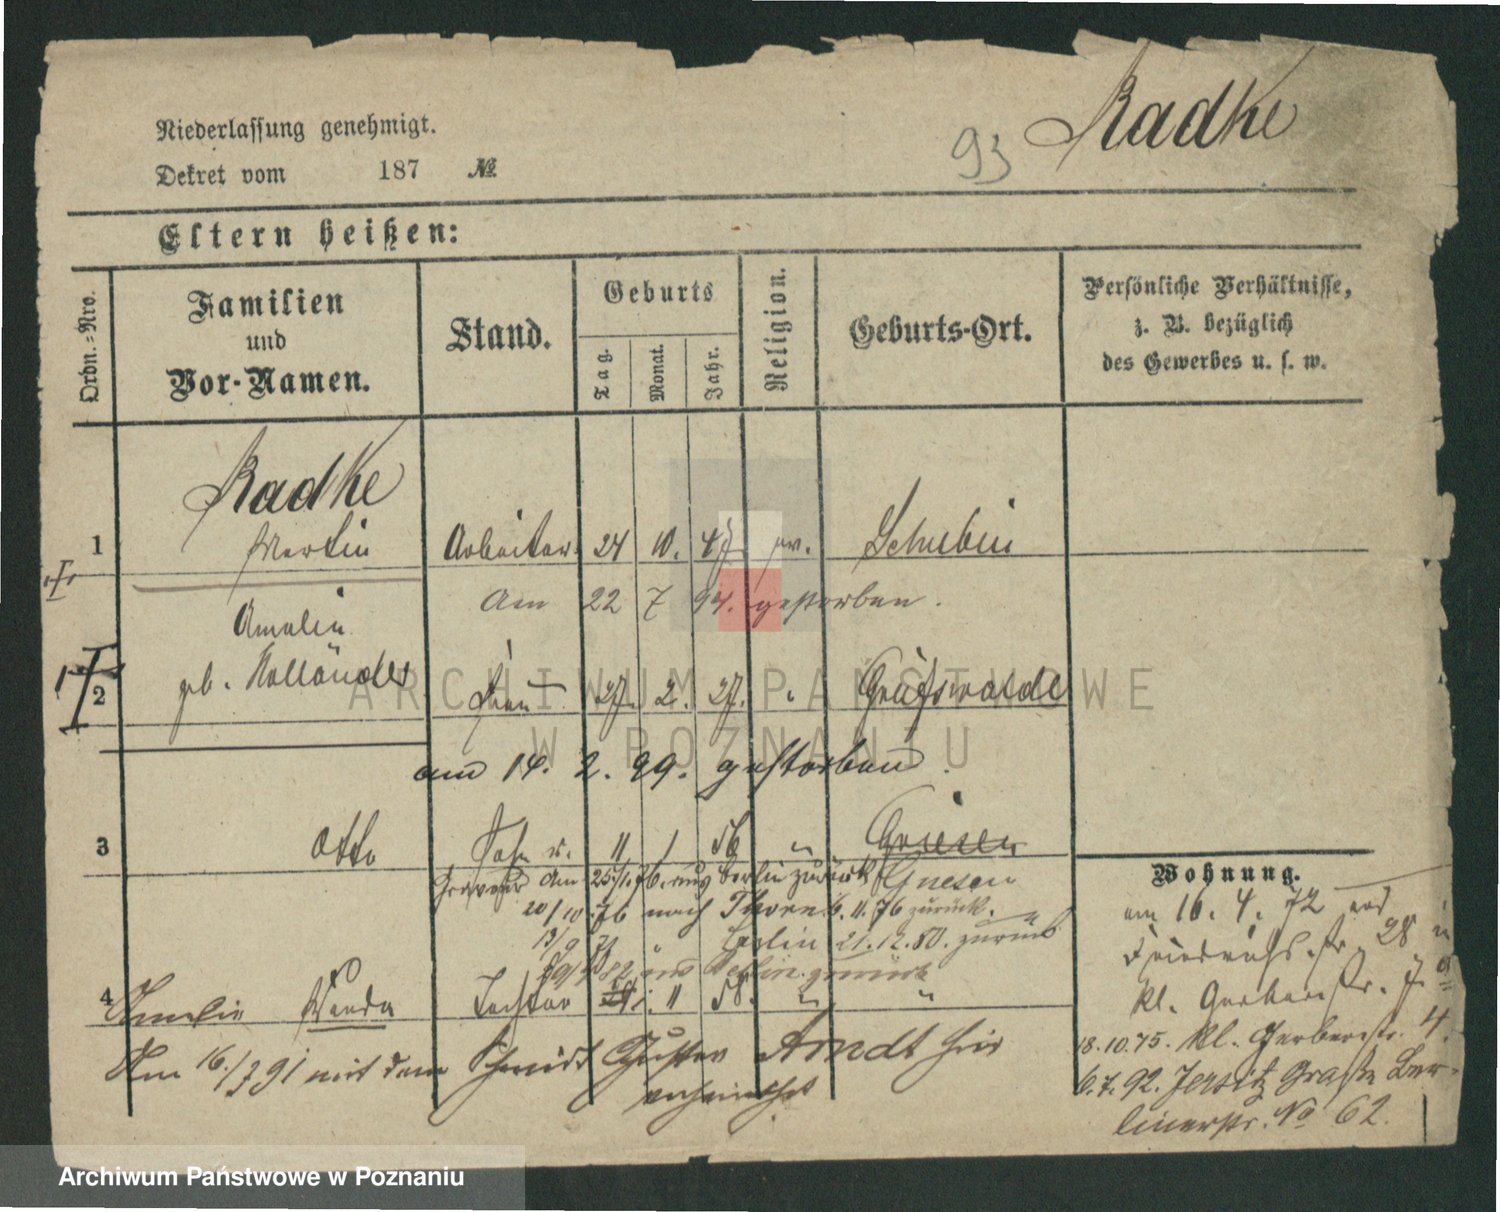 Radke
93
Niederlassung genehmigt.
Dekret vom 187 №
Eltern heißen:
Ordn.-Nro.
Familien
und
Vor-Namen.
Stand.
Geburts
Tag.
Monat.
Jahr.
Religion.
Geburts-Ort.
Persönliche Verhältnisse,
z. B. bezüglich
des Gewerbes u. s. w.
Radke
1 Martin Arbeiter 24 10. 47 ev. Schubin
Am 22 7 94. gestorben.
Amalie
2 geb. Holländer Frau 27. 2. 27. Greifswalde
am 14. 2. 99. gestorben.
3 Otto Sohn 11 1 56 " Gnesen
Graveur am 25/1. 76. aus Berlin zurück Gnesen
20/10 76 nach Thorn 6. 11. 76 zurück.
13/9 " Berlin 21. 12. 80. zurück
82 aus Berlin zurück
4 Amalie Wanda Tochter 11 58. " "
Am 16/7 91 mit dem Schmidt Gustav Arndt hier
verheirathet
Wohnung.
am 16. 4. 72
Friedrichs-str. 28
kl. Gerberstr. 7.
18.10.75. kl. Gerberstr. 4.
6.7.92. Jersitz Große Ber-
linerstr. No 62.
ARCHIWUM PAŃSTWOWE
W POZNANIU
Archiwum Państwowe w Poznaniu